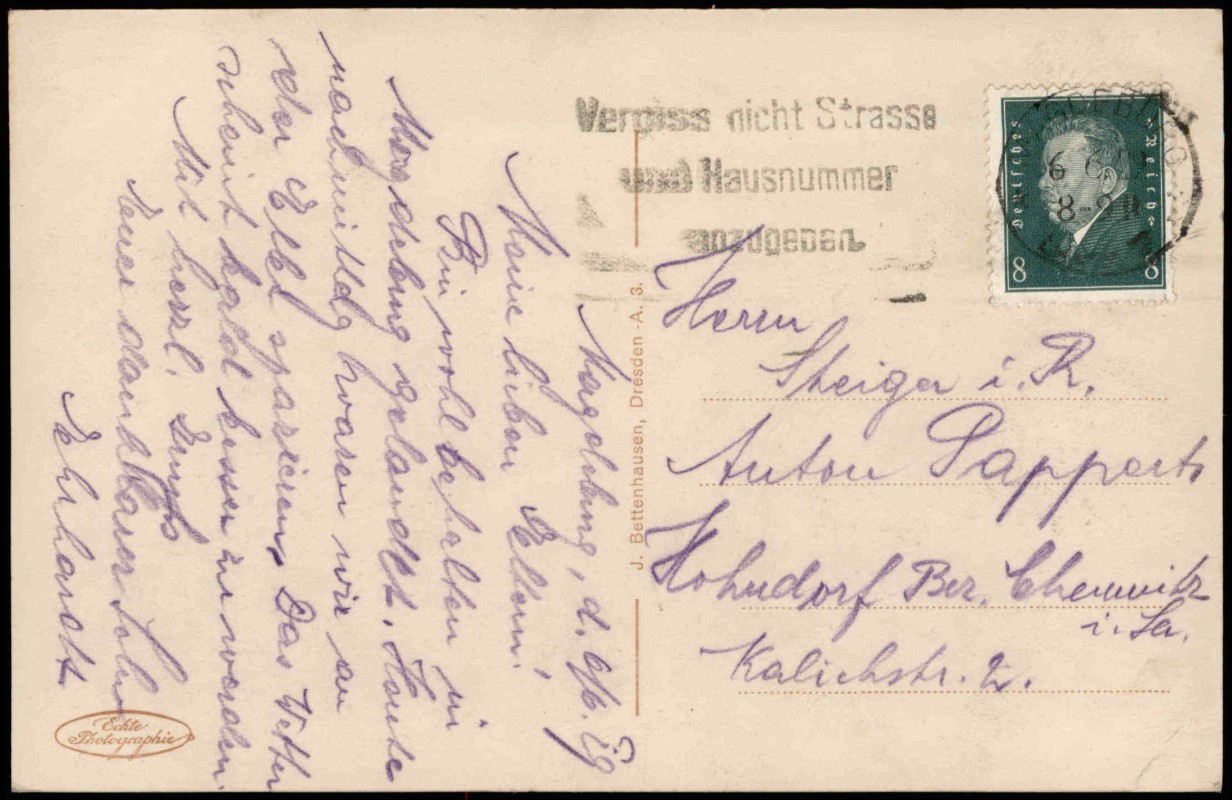 Vergiss nicht Strasse
und Hausnummer
anzugeben
Deutsches Reich
8 8
6 6
8-9 N
Magdeburg, d.
Meine lieben Eltern!
Bin wohlbehalten in
Magdeburg gelandet. Heute
nachmittag waren wir an
der Elbe spazieren. Das Wetter
scheint bald besser zu werden.
Mit herzl. Gruß
Euer dankbarer Sohn
Erhardt
J. Bettenhausen, Dresden-A. 3.
Herrn
Steiger i. R.
Anton Papperts
Hohndorf Bez. Chemnitz
i. Sa.
Kalichstr. 2.
Echte
Photographie